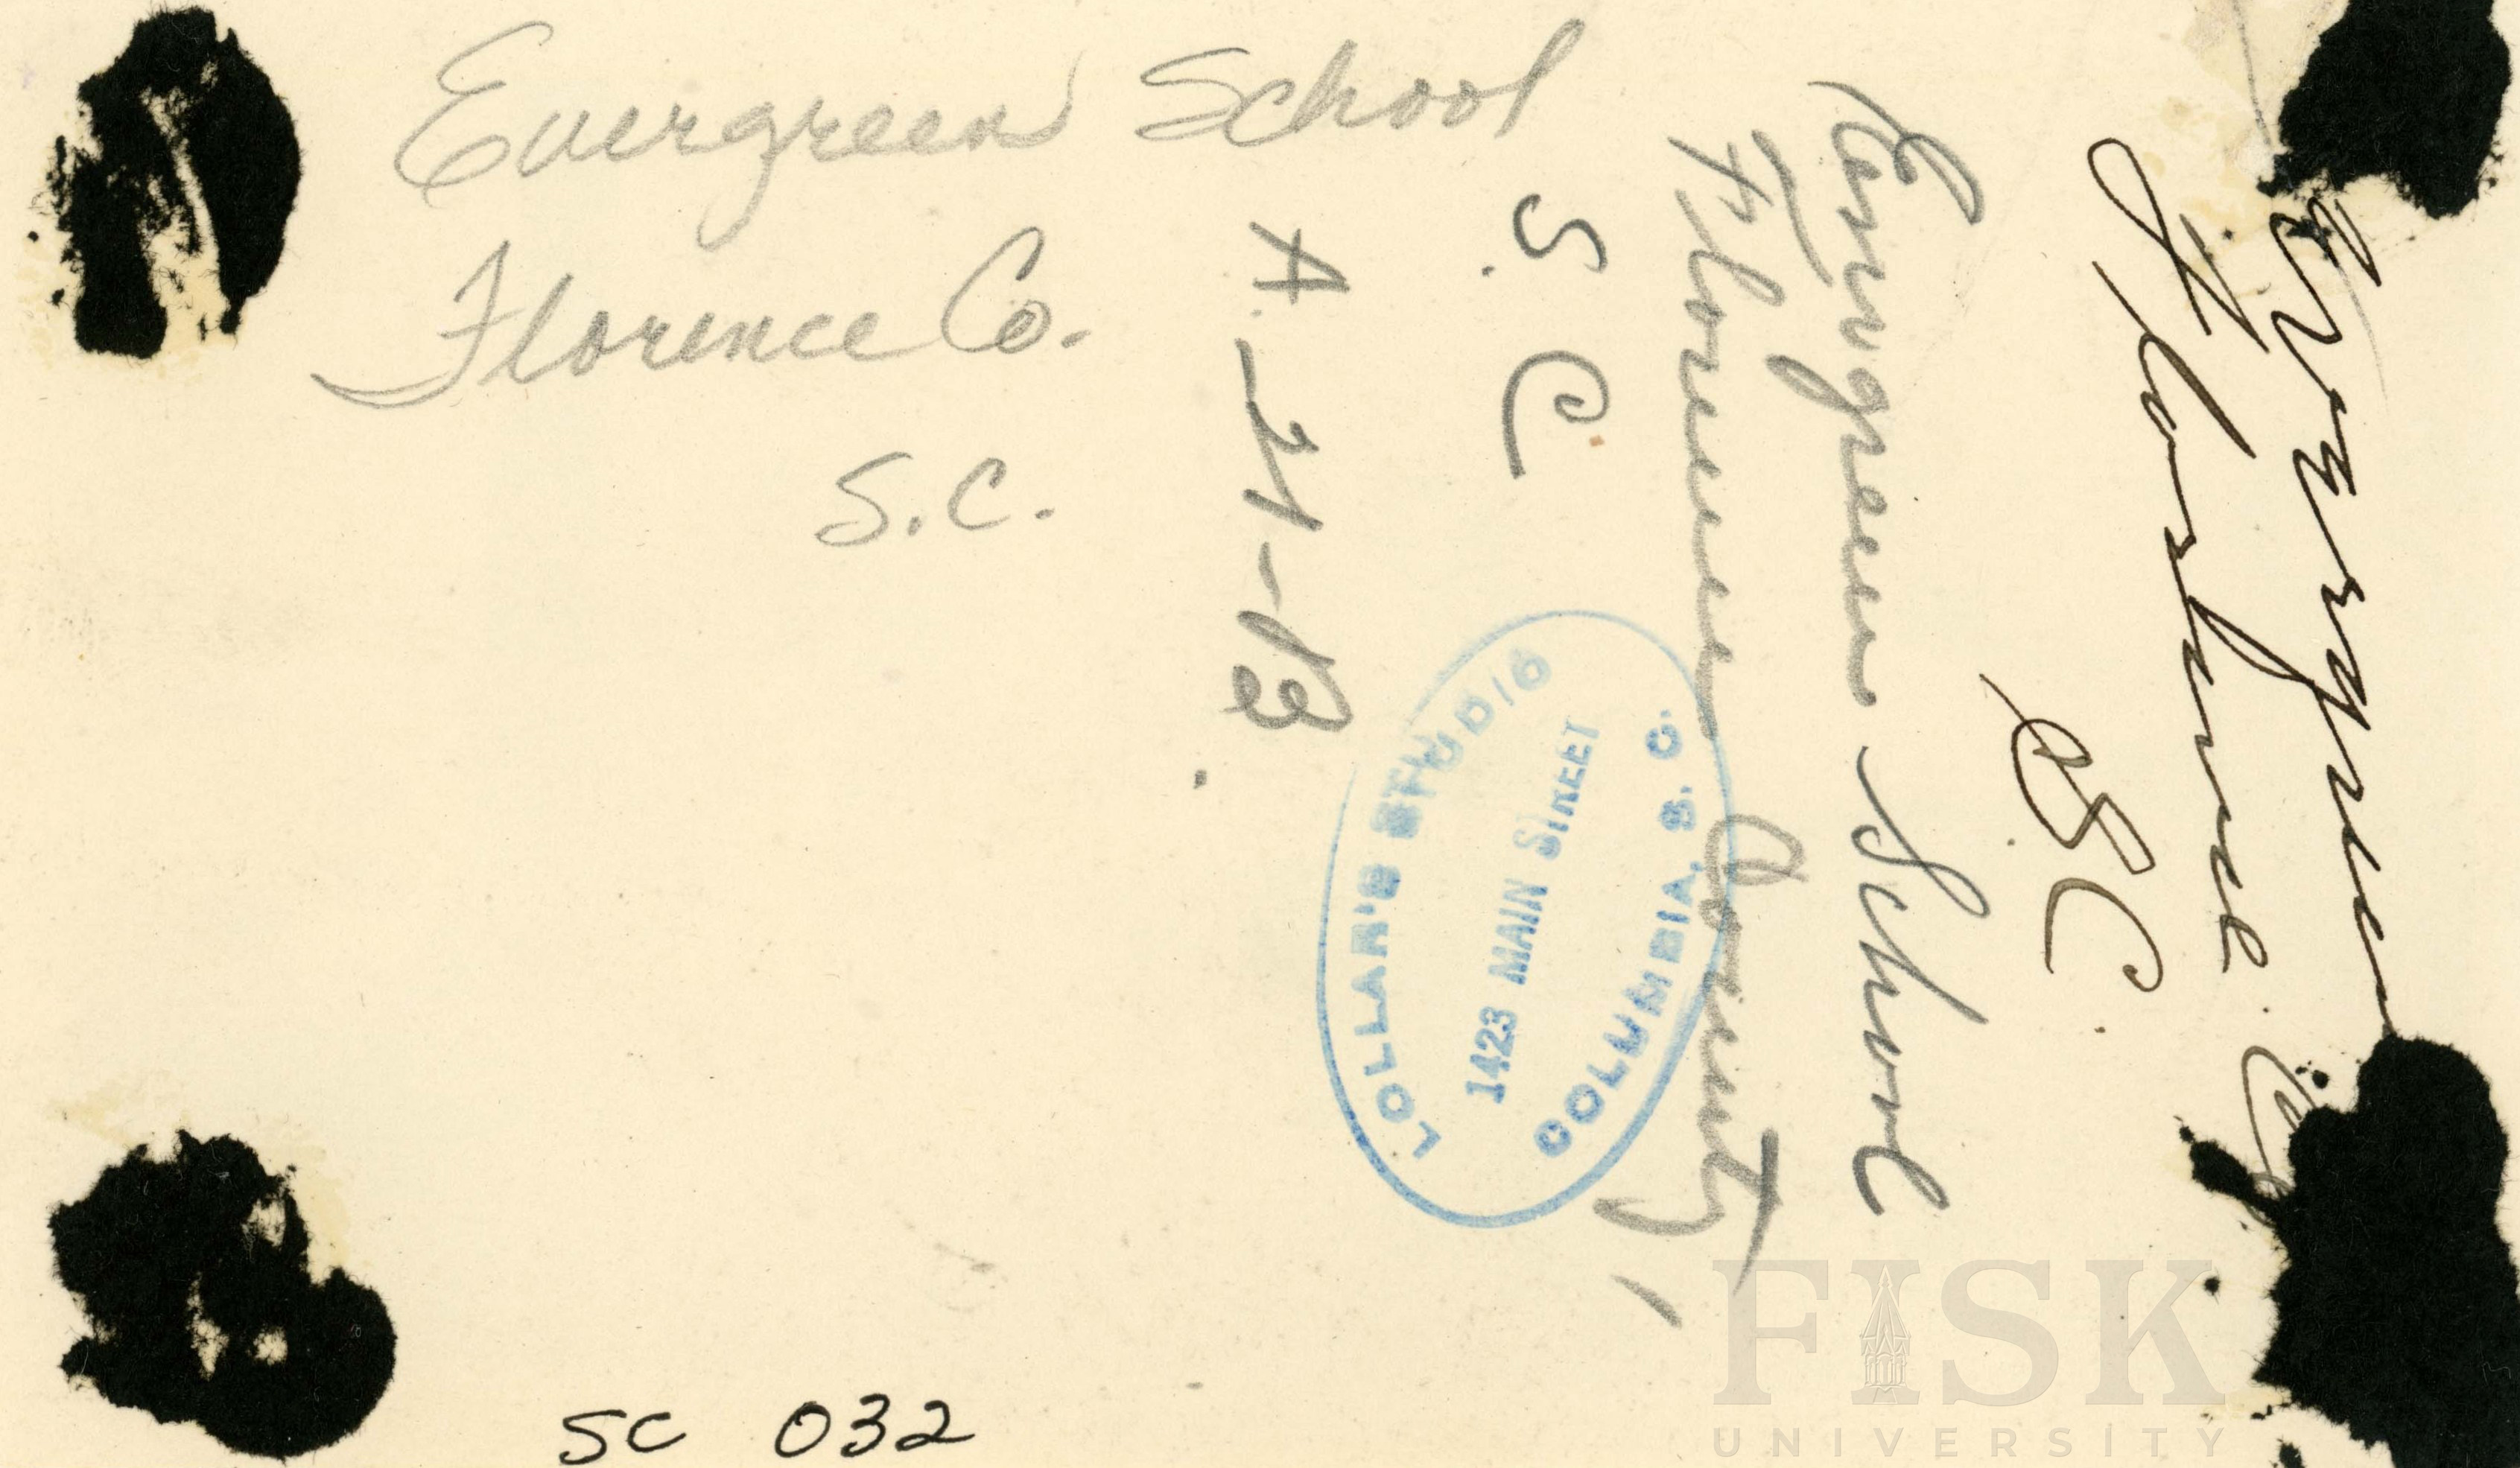 Evergreen School
Florence Co.
S.C.
Evergreen
Florence Co
SC
Evergreen School
Florence County,
S. C.
A. 21-B
LOLLAR'S STUDIO
1423 MAIN STREET
COLUMBIA, S. C.
SC 032
FISK
UNIVERSITY